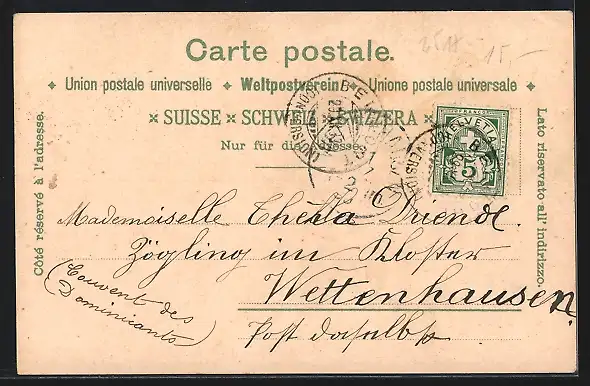 Carte postale.
Union postale universelle ✦ Weltpostverein ✦ Unione postale universale
SUISSE × SCHWEIZ × SVIZZERA
Nur für die Adresse.
Côté réservé à l'adresse.
Lato riservato all' indirizzo.
HELVETIA
5
Mademoiselle Thekla Driendl
Zögling im Kloster
Wettenhausen.
Post daselbst
(Couvent des
Dominicants)
15,-